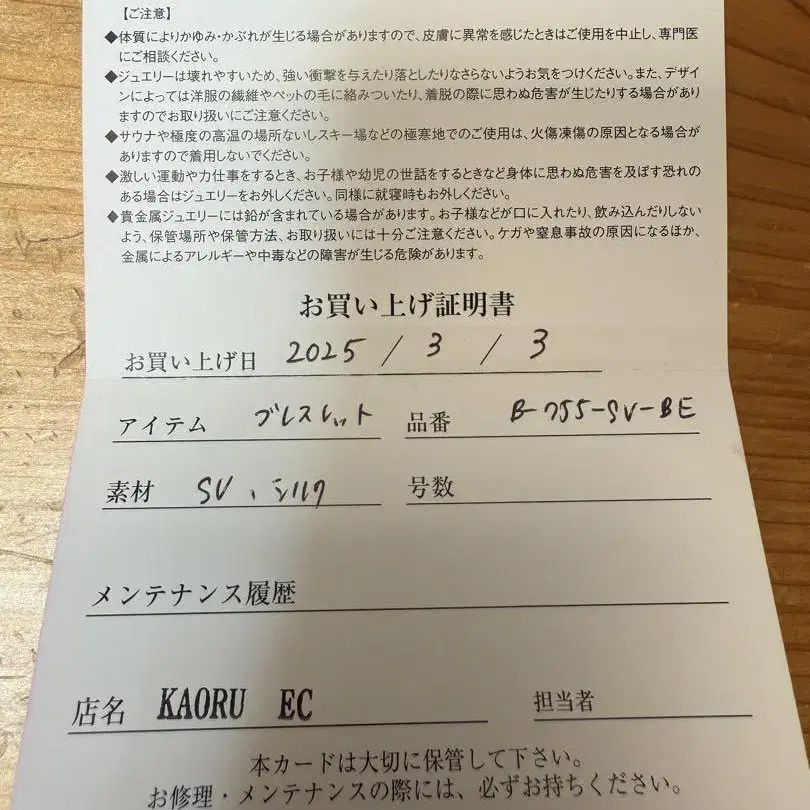 【ご注意】
◆体質によりかゆみ・かぶれが生じる場合がありますので、皮膚に異常を感じたときはご使用を中止し、専門医
にご相談ください。
◆ジュエリーは壊れやすいため、強い衝撃を与えたり落としたりなさらないようお気をつけください。また、デザイ
ンによっては洋服の繊維やペットの毛に絡みついたり、着脱の際に思わぬ危害が生じたりする場合があり
ますのでお取り扱いにご注意ください。
◆サウナや極度の高温の場所ないしスキー場などの極寒地でのご使用は、火傷凍傷の原因となる場合が
ありますので着用しないでください。
◆激しい運動や力仕事をするとき、お子様や幼児の世話をするときなど身体に思わぬ危害を及ぼす恐れの
ある場合はジュエリーをお外しください。同様に就寝時もお外しください。
◆貴金属ジュエリーには鉛が含まれている場合があります。お子様などが口に入れたり、飲み込んだりしない
よう、保管場所や保管方法、お取り扱いには十分ご注意ください。ケガや窒息事故の原因になるほか、
金属によるアレルギーや中毒などの障害が生じる危険があります。
お買い上げ証明書
お買い上げ日 2025 / 3 / 3
アイテム ブレスレット 品番 B-755-SV-BE
素材 SV、シルク 号数
メンテナンス履歴
店名 KAORU EC 担当者
本カードは大切に保管して下さい。
お修理・メンテナンスの際には、必ずお持ちください。